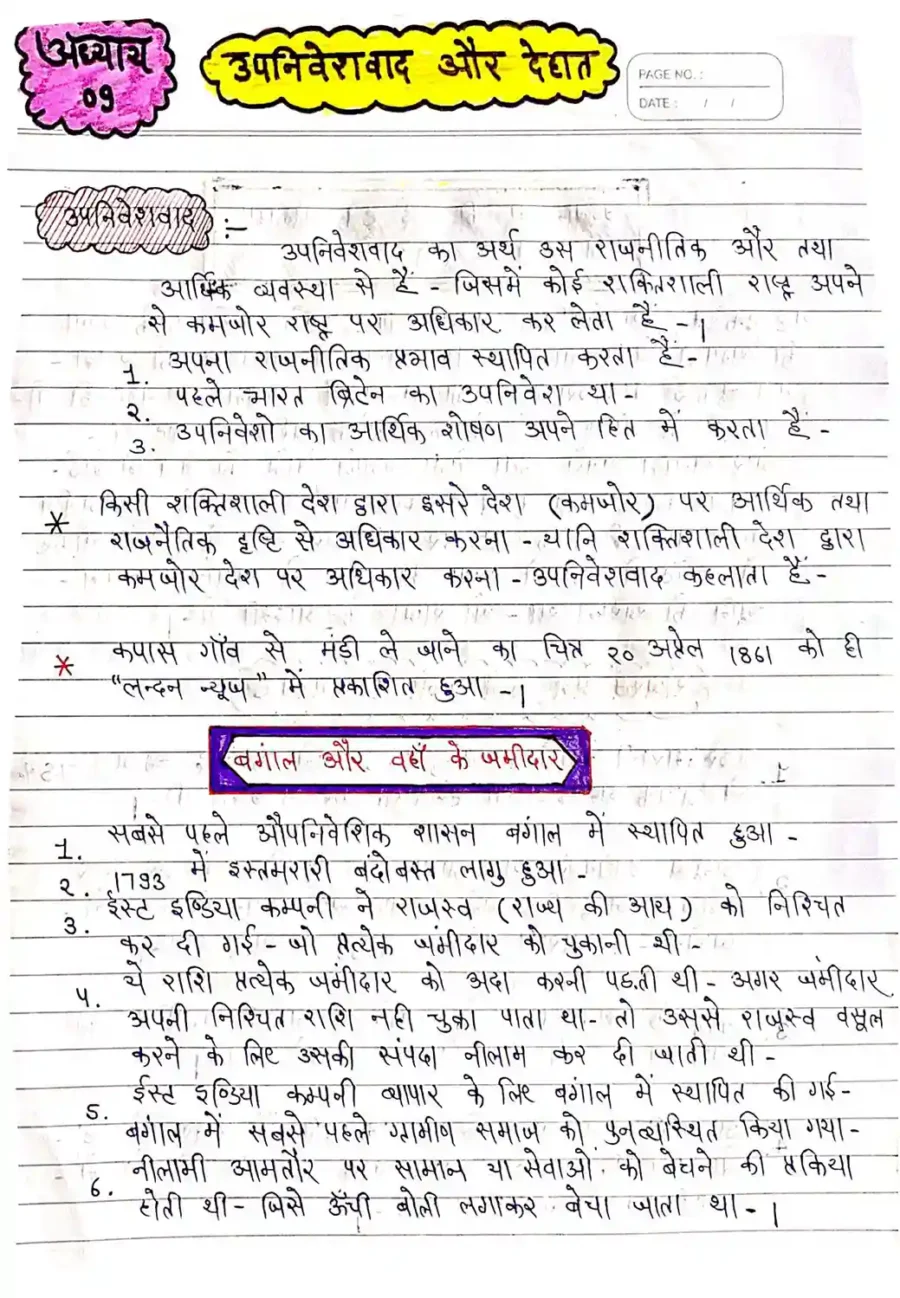 अध्याय
09
उपनिवेशवाद और देहात
PAGE NO. :
DATE : / /
उपनिवेशवाद :-
उपनिवेशवाद का अर्थ उस राजनीतिक और तथा
आर्थिक व्यवस्था से हैं - जिसमें कोई शक्तिशाली राष्ट्र अपने
से कमजोर राष्ट्र पर अधिकार कर लेता हैं -।
1. अपना राजनीतिक प्रभाव स्थापित करता हैं-
2. पहले भारत ब्रिटेन का उपनिवेश था -
3. उपनिवेशो का आर्थिक शोषण अपने हित में करता हैं -
* किसी शक्तिशाली देश द्वारा दुसरे देश (कमजोर) पर आर्थिक तथा
राजनैतिक दृष्टि से अधिकार करना - यानि शक्तिशाली देश द्वारा
कमजोर देश पर अधिकार करना - उपनिवेशवाद कहलाता हैं -
* कपास गाँव से मंडी ले जाने का चित्र २० अप्रेल 1861 को ही
"लन्दन न्यूज" में प्रकाशित हुआ -।
बगांल और वहाँ के जमीदार
1. सबसे पहले औपनिवेशिक शासन बगांल में स्थापित हुआ -
२. 1793 में इस्तमरारी बंदोबस्त लागु हुआ -
3. ईस्ट इण्डिया कम्पनी ने राजस्व (राज्य की आय) को निश्चित
कर दी गई - जो प्रत्येक जमींदार को चुकानी थी -
4. ये राशि प्रत्येक जमींदार को अदा करनी पडती थी - अगर जमींदार
अपनी निश्चित राशि नही चुका पाता था- तो उससे राजस्व वसूल
करने के लिए उसकी संपदा नीलाम कर दी जाती थी -
5. ईस्ट इण्डिया कम्पनी व्यापार के लिए बगांल में स्थापित की गई-
बगांल में सबसे पहले ग्रामीण समाज को पुनर्व्यस्थित किया गया -
6. नीलामी आमतौर पर सामान या सेवाओं को बेचने की प्रकिया
होती थी - जिसे ऊँची बोली लगाकर बेचा जाता था -।